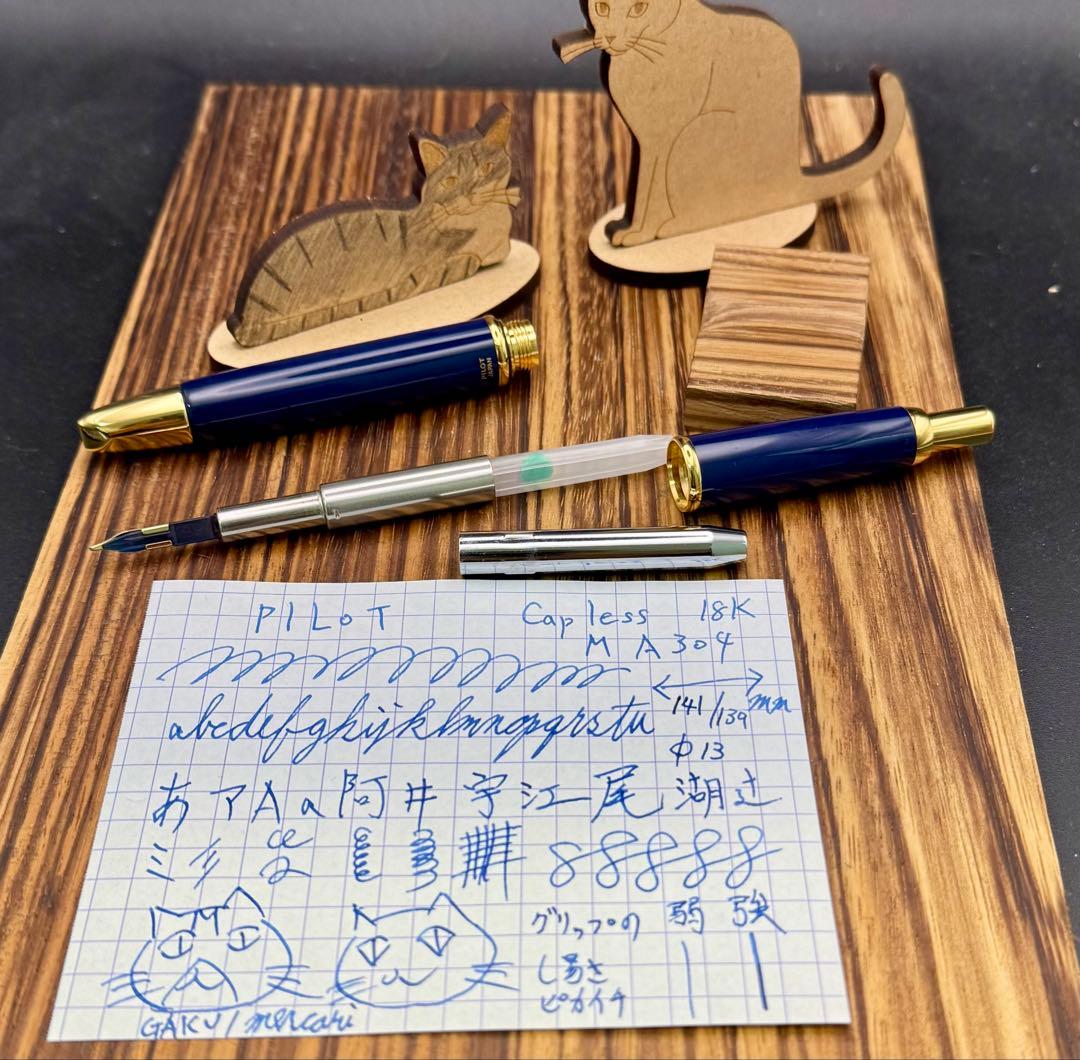 PILOT
JAPAN
PILOT Capless 18K
MA304
abcdefghijklmnopqrstu
141/139 mm
φ13
あアAa阿井宇江尾湖辻
ミ彡
グリップの 弱 強
し易さ
ピカイチ
GAKU/mercari